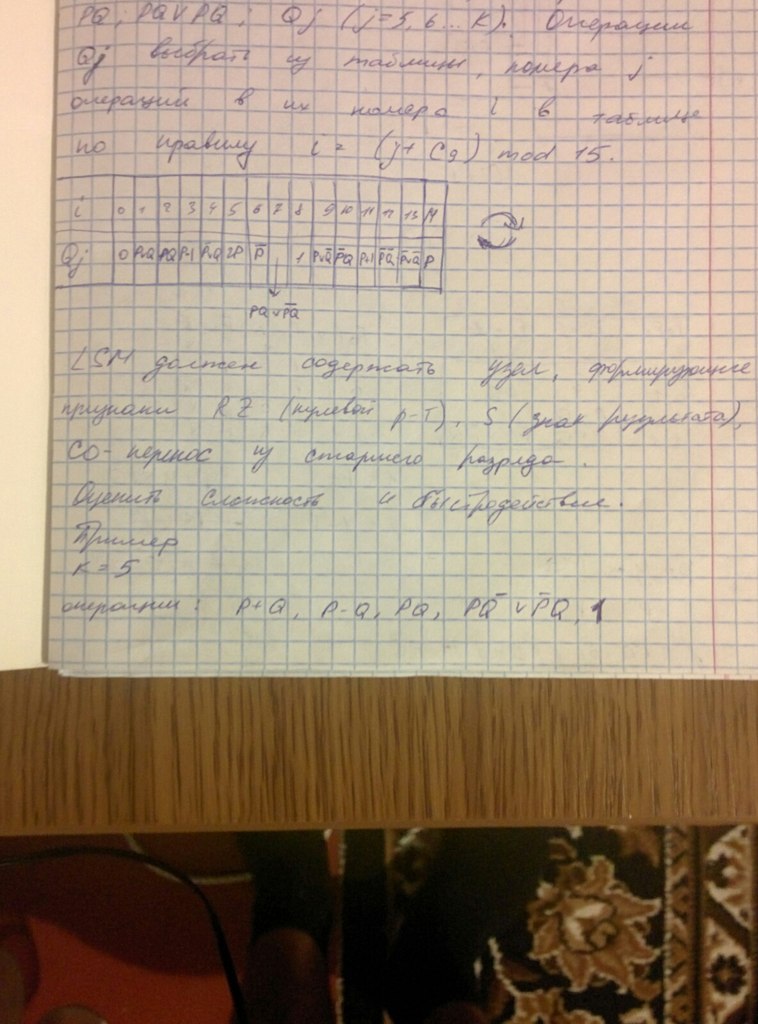 PQ; PQ̄ V P̄Q; Qj (j=5, 6 ... K). Операции
Qj выбрать из таблицы, номера j
операций в их номера i в таблице
по правилу i = (j + C9) mod 15.
i 0 1 2 3 4 5 6 7 8 9 10 11 12 13 14
Qj 0 PQ 2P P̄ 1 P̄Q P+1 P̄Q̄ P
PQ v P̄Q̄
LSM должен содержать узел, формирующие
признаки RZ (нулевой р-т), S (знак результата),
CO - перенос из старшего разряда.
Оценить сложность и быстродействие.
Пример
K = 5
операции: P+Q, P-Q, PQ, PQ̄ v P̄Q, 1